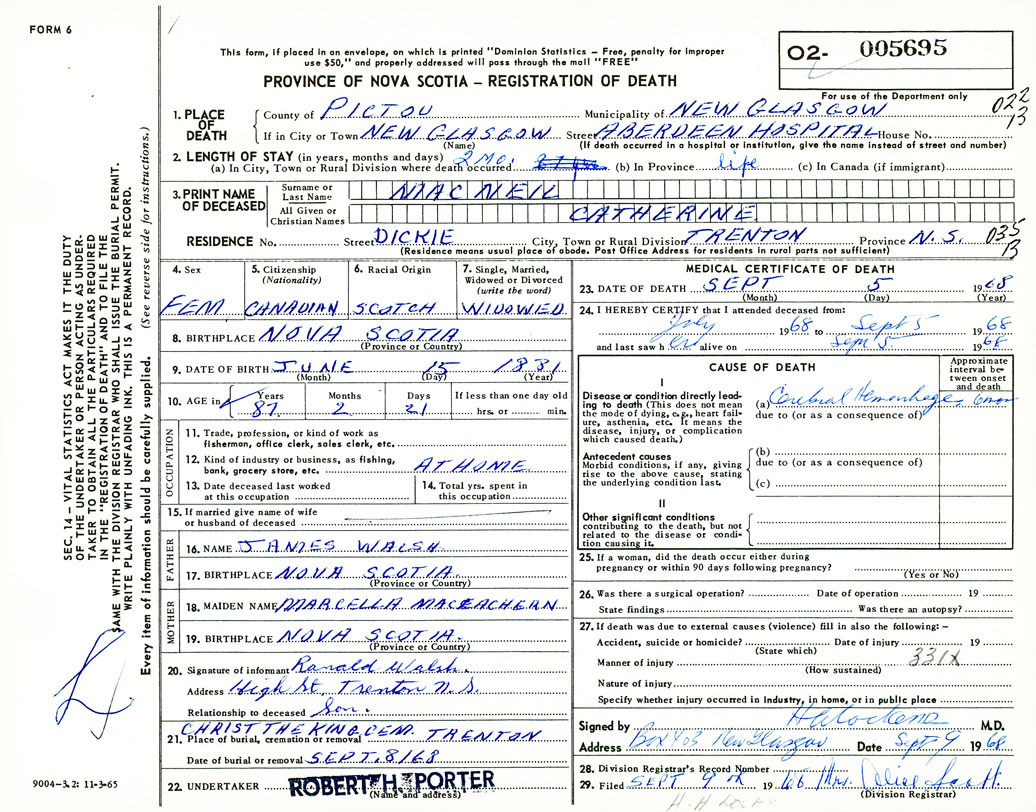 FORM 6
This form, if placed in an envelope, on which is printed "Dominion Statistics – Free, penalty for improper
use $50," and properly addressed will pass through the mail "FREE"
PROVINCE OF NOVA SCOTIA – REGISTRATION OF DEATH
O2- 005695
For use of the Department only
022
13
1. PLACE OF DEATH
County of PICTOU Municipality of NEW GLASGOW
If in City or Town NEW GLASGOW Street ABERDEEN HOSPITAL House No.
(Name) (If death occurred in a hospital or institution, give the name instead of street and number)
2. LENGTH OF STAY (in years, months and days)
(a) In City, Town or Rural Division where death occurred 2 MO. (b) In Province life (c) In Canada (if immigrant)
3. PRINT NAME OF DECEASED
Surname or Last Name MAC NEIL
All Given or Christian Names CATHERINE
RESIDENCE No. Street DICKIE City, Town or Rural Division TRENTON Province N.S. 035
13
(Residence means usual place of abode. Post Office Address for residents in rural parts not sufficient)
4. Sex FEM
5. Citizenship (Nationality) CANADIAN
6. Racial Origin SCOTCH
7. Single, Married, Widowed or Divorced (write the word) WIDOWED
8. BIRTHPLACE NOVA SCOTIA
(Province or Country)
9. DATE OF BIRTH JUNE 15 1881
(Month) (Day) (Year)
10. AGE in Years 87 Months 2 Days 21 If less than one day old hrs. or min.
OCCUPATION
11. Trade, profession, or kind of work as
fisherman, office clerk, soles clerk, etc.
12. Kind of industry or business, as fishing,
bank, grocery store, etc. AT HOME
13. Date deceased last worked
at this occupation
14. Total yrs. spent in
this occupation
15. If married give name of wife
or husband of deceased
FATHER
16. NAME JAMES WALSH
17. BIRTHPLACE NOVA SCOTIA.
(Province or Country)
MOTHER
18. MAIDEN NAME MARCELLA MACEACHERN
19. BIRTHPLACE NOVA SCOTIA.
(Province or Country)
20. Signature of informant Ranald Walsh.
Address High St. Trenton N.S.
Relationship to deceased Son.
CHRIST THE KING CEM. TRENTON
21. Place of burial, cremation or removal
Date of burial or removal SEPT. 8/68
22. UNDERTAKER ROBERT H. PORTER
(Name and address)
MEDICAL CERTIFICATE OF DEATH
23. DATE OF DEATH SEPT 5 1968
(Month) (Day) (Year)
24. I HEREBY CERTIFY that I attended deceased from:
July 1968 to Sept 5 1968
and last saw her alive on Sept 5 1968
CAUSE OF DEATH
Approximate interval between onset and death
I
Disease or condition directly leading to death (This does not
the mode of dying, e.g., heart failure, asthenia, etc. It means the
disease, injury, or complication
which caused death.)
(a) Cerebral Hemorrhage
due to (or as a consequence of)
Antecedent causes
Morbid conditions, if any, giving
rise to the above cause, stating
the underlying condition last.
(b)
due to (or as a consequence of)
(c)
II
Other significant conditions
contributing to the death, but not
related to the disease or condition causing it.
25. If a woman, did the death occur either during
pregnancy or within 90 days following pregnancy?
(Yes or No)
26. Was there a surgical operation? Date of operation 19
State findings Was there an autopsy?
27. If death was due to external causes (violence) fill in also the following: –
Accident, suicide or homicide? Date of injury 19
(State which)
Manner of injury 331X
(How sustained)
Nature of injury
Specify whether injury occurred in Industry, in home, or in public place
Signed by M.D.
Address Box 403 New Glasgow Date Sept 9 1968
28. Division Registrar's Record Number
29. Filed SEPT 9 1968 Mrs. Scott.
(Division Registrar)
SEC. 14 – VITAL STATISTICS ACT MAKES IT THE DUTY
OF THE UNDERTAKER OR PERSON ACTING AS UNDER-
TAKER TO OBTAIN ALL THE PARTICULARS REQUIRED
IN THE "REGISTRATION OF DEATH" AND TO FILE THE
SAME WITH THE DIVISION REGISTRAR WHO SHALL ISSUE THE BURIAL PERMIT.
WRITE PLAINLY WITH UNFADING INK. THIS IS A PERMANENT RECORD.
Every item of information should be carefully supplied. (See reverse side for instructions.)
9004–3.2: 11-3-65